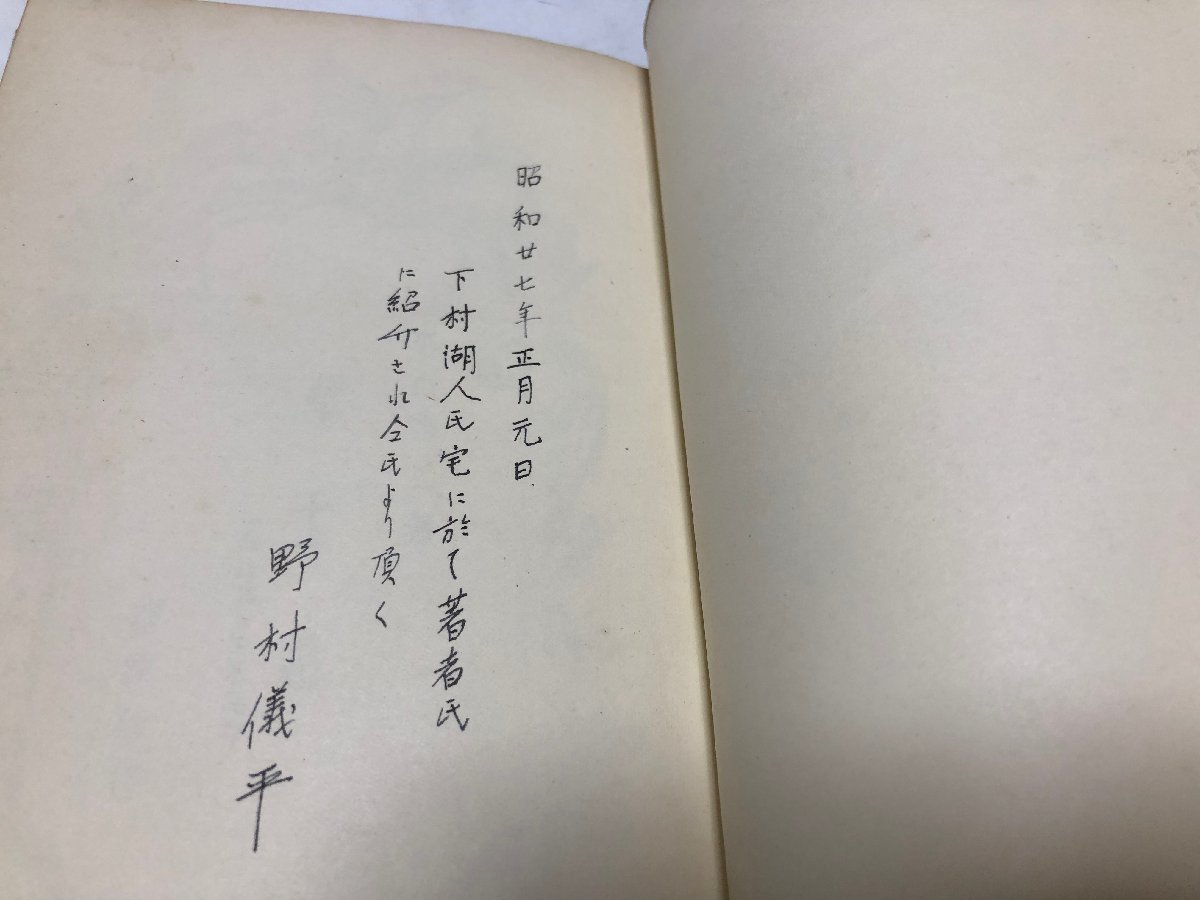 昭和廿七年正月元日
下村湖人氏宅に於て著者氏
に紹介され仝氏より頂く
野村儀平